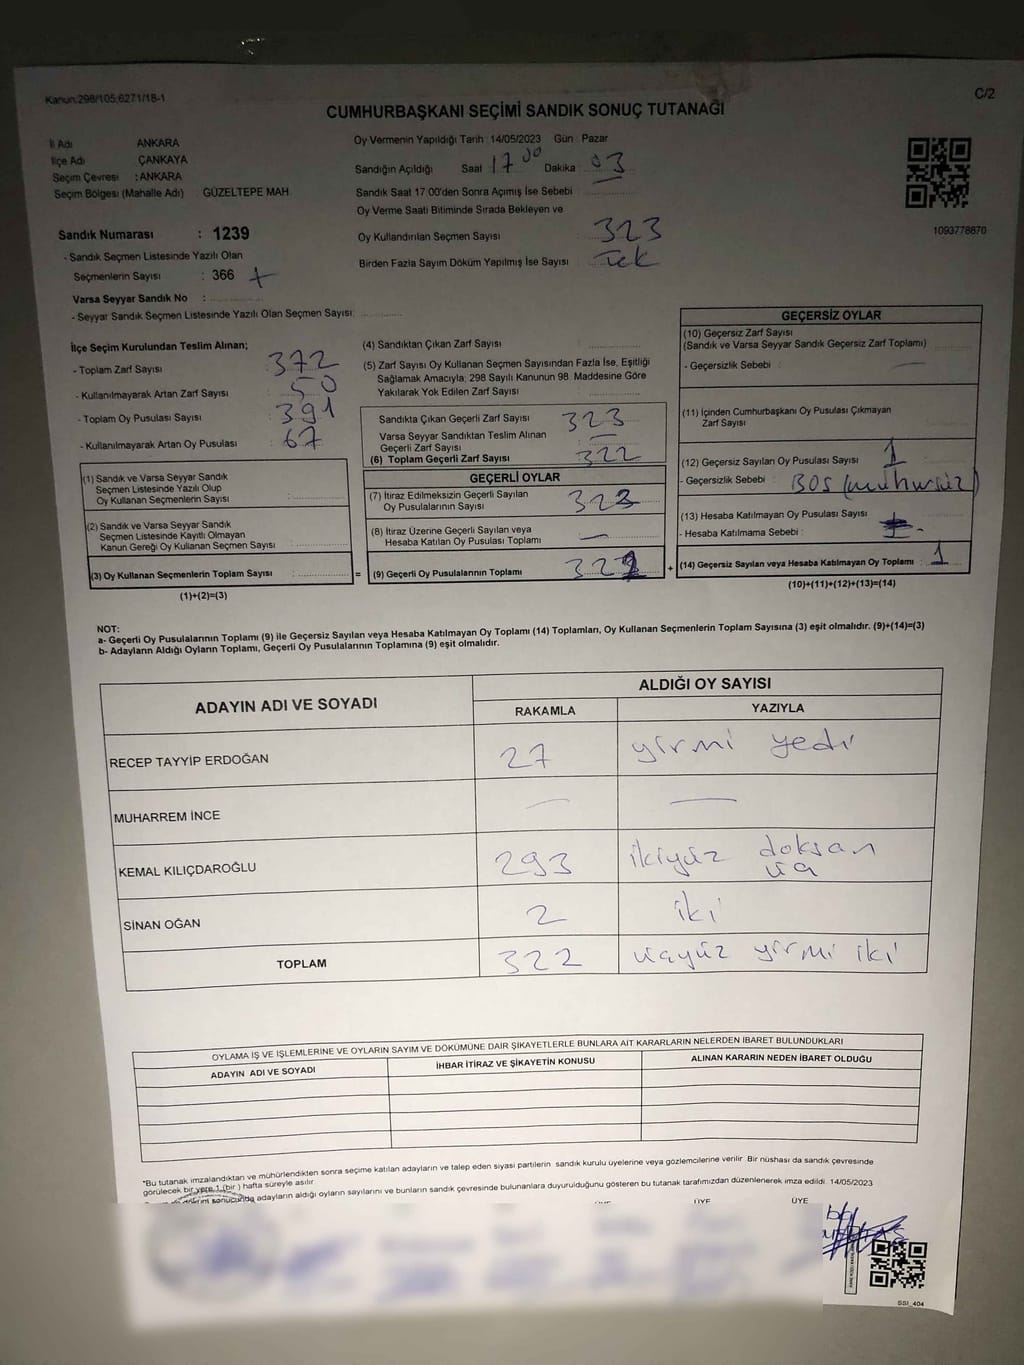 Kanun:298/105;6271/18-1
C/2
CUMHURBAŞKANI SEÇİMİ SANDIK SONUÇ TUTANAĞI
İl Adı ANKARA
İlçe Adı ÇANKAYA
Seçim Çevresi : ANKARA
Seçim Bölgesi (Mahalle Adı) GÜZELTEPE MAH.
Sandık Numarası : 1239
- Sandık Seçmen Listesinde Yazılı Olan
Seçmenlerin Sayısı : 366
Varsa Seyyar Sandık No :
- Seyyar Sandık Seçmen Listesinde Yazılı Olan Seçmen Sayısı:
Oy Vermenin Yapıldığı Tarih :14/05/2023 Gün : Pazar
Sandığın Açıldığı Saat 17 00 Dakika : 03
Sandık Saat 17.00'den Sonra Açımış İse Sebebi :
Oy Verme Saati Bitiminde Sırada Bekleyen ve
Oy Kullandırılan Seçmen Sayısı : 323
Birden Fazla Sayım Döküm Yapılmış İse Sayısı : Tek
1093778670
İlçe Seçim Kurulundan Teslim Alınan;
- Toplam Zarf Sayısı : 372
- Kullanılmayarak Artan Zarf Sayısı : 50
- Toplam Oy Pusulası Sayısı : 391
- Kullanılmayarak Artan Oy Pusulası : 67
(1) Sandık ve Varsa Seyyar Sandık
Seçmen Listesinde Yazılı Olup
Oy Kullanan Seçmenlerin Sayısı :
(2) Sandık ve Varsa Seyyar Sandık
Seçmen Listesinde Kayıtlı Olmayan
Kanun Gereği Oy Kullanan Seçmen Sayısı :
(3) Oy Kullanan Seçmenlerin Toplam Sayısı :
(1)+(2)=(3)
(4) Sandıktan Çıkan Zarf Sayısı :
(5) Zarf Sayısı Oy Kullanan Seçmen Sayısından Fazla İse, Eşitliği
Sağlamak Amacıyla; 298 Sayılı Kanunun 98. Maddesine Göre
Yakılarak Yok Edilen Zarf Sayısı :
Sandıkta Çıkan Geçerli Zarf Sayısı : 323
Varsa Seyyar Sandıktan Teslim Alınan
Geçerli Zarf Sayısı : —
(6) Toplam Geçerli Zarf Sayısı : 322
GEÇERLİ OYLAR
(7) İtiraz Edilmeksizin Geçerli Sayılan
Oy Pusulalarının Sayısı :
(8) İtiraz Üzerine Geçerli Sayılan veya
Hesaba Katılan Oy Pusulası Toplamı : —
= (9) Geçerli Oy Pusulalarının Toplamı : +
GEÇERSİZ OYLAR
(10) Geçersiz Zarf Sayısı
(Sandık ve Varsa Seyyar Sandık Geçersiz Zarf Toplamı) :
- Geçersizlik Sebebi : —
(11) İçinden Cumhurbaşkanı Oy Pusulası Çıkmayan
Zarf Sayısı :
(12) Geçersiz Sayılan Oy Pusulası Sayısı : 1
- Geçersizlik Sebebi : BOŞ (mühürsüz)
(13) Hesaba Katılmayan Oy Pusulası Sayısı :
- Hesaba Katılmama Sebebi :
(14) Geçersiz Sayılan veya Hesaba Katılmayan Oy Toplamı : 1
(10)+(11)+(12)+(13)=(14)
NOT:
a- Geçerli Oy Pusulalarının Toplamı (9) ile Geçersiz Sayılan veya Hesaba Katılmayan Oy Toplamı (14) Toplamları, Oy Kullanan Seçmenlerin Toplam Sayısına (3) eşit olmalıdır. (9)+(14)=(3)
b- Adayların Aldığı Oyların Toplamı, Geçerli Oy Pusulalarının Toplamına (9) eşit olmalıdır.
ADAYIN ADI VE SOYADI ALDIĞI OY SAYISI
RAKAMLA YAZIYLA
RECEP TAYYİP ERDOĞAN 27 yirmi yedi
MUHARREM İNCE — —
KEMAL KILIÇDAROĞLU 293 ikiyüz doksan üç
SİNAN OĞAN 2 iki
TOPLAM 322 üçyüz yirmi iki
OYLAMA İŞ VE İŞLEMLERİNE VE OYLARIN SAYIM VE DÖKÜMÜNE DAİR ŞİKAYETLERLE BUNLARA AİT KARARLARIN NELERDEN İBARET BULUNDUKLARI
ADAYIN ADI VE SOYADI İHBAR İTİRAZ VE ŞİKAYETİN KONUSU ALINAN KARARIN NEDEN İBARET OLDUĞU
*Bu tutanak imzalandıktan ve mühürlendikten sonra seçime katılan adayların ve talep eden siyasi partilerin sandık kurulu üyelerine veya gözlemcilerine verilir. Bir nüshası da sandık çevresinde
görülecek bir yere 1 (bir) hafta süreyle asılır.
sonucunda adayların aldığı oyların sayılarını ve bunların sandık çevresinde bulunanlara duyurulduğunu gösteren bu tutanak tarafımızdan düzenlenerek imza edildi. 14/05/2023
ÜYE ÜYE
SSI_404